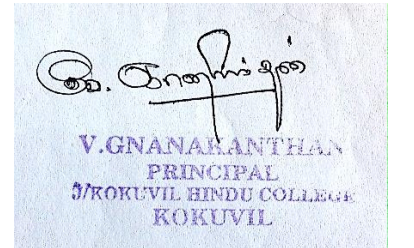 வே. ஞானகாந்தன்
V.GNANAKANTHAN
PRINCIPAL
J/KOKUVIL HINDU COLLEGE
KOKUVIL